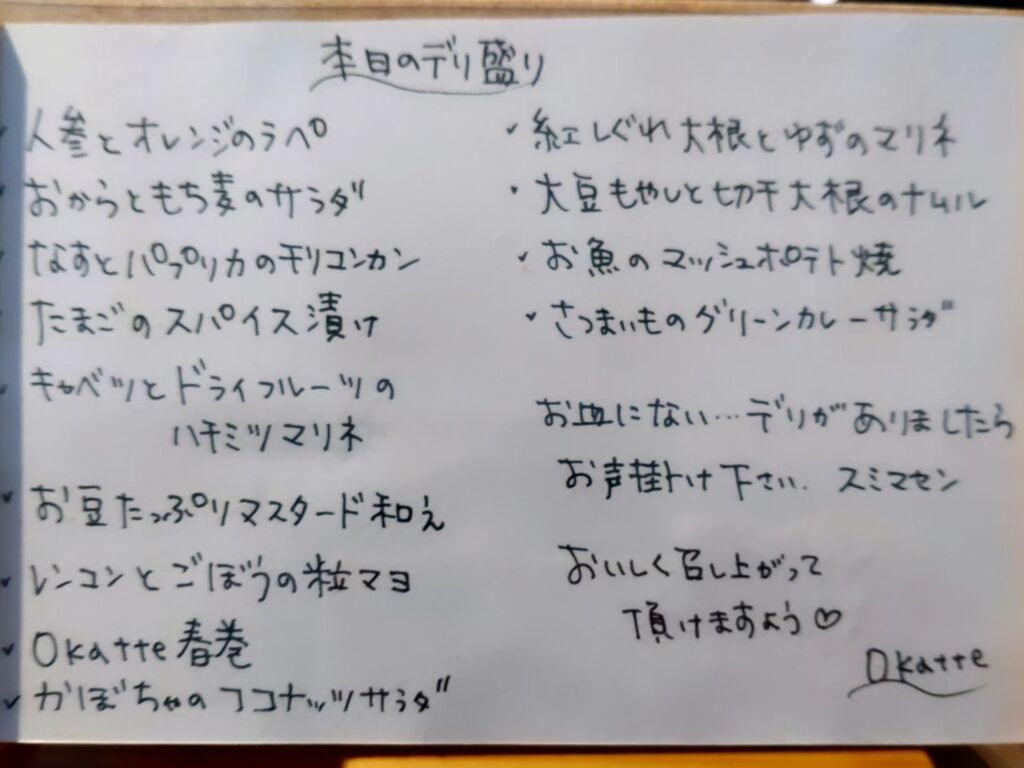 本日のデリ盛り
✓人参とオレンジのラペ
✓おからともち麦のサラダ
✓なすとパプリカのモリコンカン
✓たまごのスパイス漬け
✓キャベツとドライフルーツの
ハチミツマリネ
✓お豆たっぷりマスタード和え
✓レンコンとごぼうの粒マヨ
✓Okatte春巻
✓かぼちゃのココナッツサラダ
✓紅しぐれ大根とゆずのマリネ
✓大豆もやしと切干大根のナムル
✓お魚のマッシュポテト焼
✓さつまいものグリーンカレーサラダ
お皿にない…デリがありましたら
お声掛け下さい. スミマセン
おいしく召し上がって
頂けますよう♡
Okatte